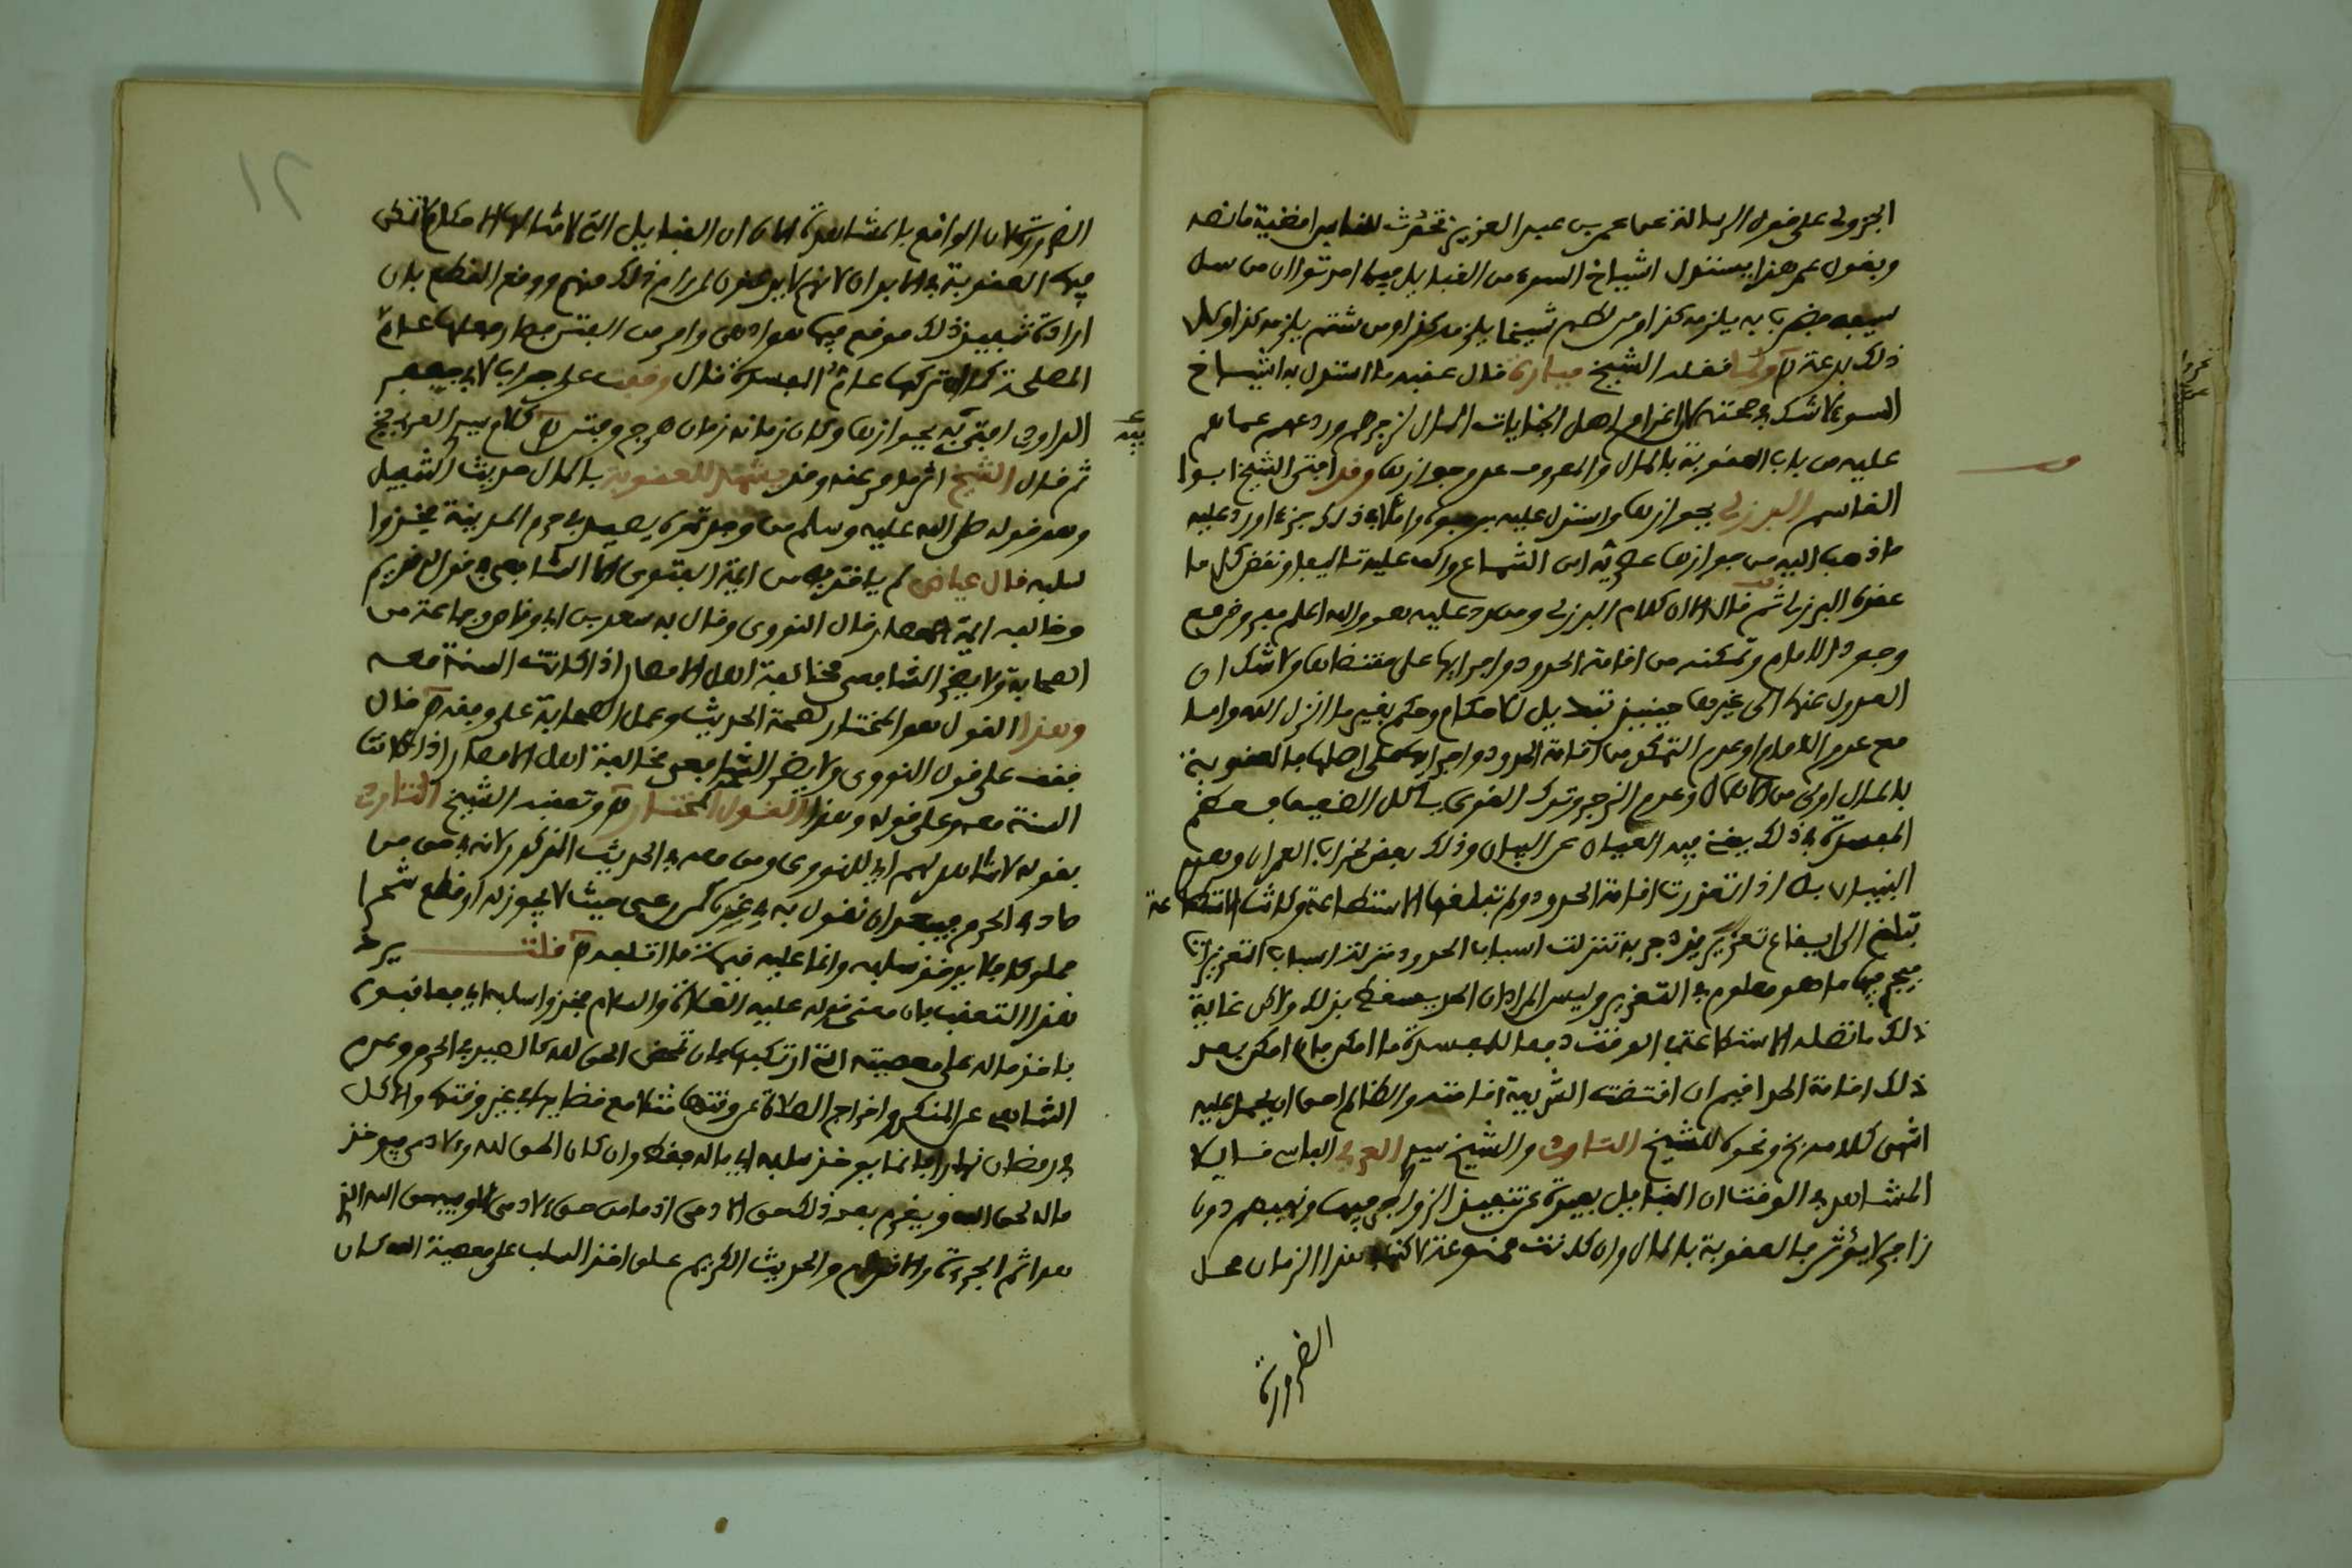 الجزولي على قول الرسالة عن عمر بن عبد العزيز تحدث للناس اقضية ما نصه
وبقول عمر هذا يستدل اشياخ السوء من القبايل فيما احدثوا ان من سل
سيفه فضرب به يلزمه كذا ومن لطم شيخا يلزمه كذا ومن شتم يلزمه كذا وكل
ذلك بدعة نقله الشيخ ميارة قال عقبه ما استدل به اشياخ
السوء لا شك في صحته لاغرام اهل الجنايات المال لزجرهم وردعهم عما هم
عليه من باب العقوبة بالمال والمعروف عدم جوازها وقد افتى الشيخ ابو
القاسم البرزلي بجوازها واستدل عليه واملا في ذلك جزءا ورد عليه
ما ذهب اليه من جوازها عصريه ابن الشماع والف عليه تاليفا ونقض كل ما
عقده البرزلي ثم قال الا ان كلام البرزلي ومن رد عليه هو والله اعلم مع
وجود الامام وتمكنه من اقامة الحدود واجرايها على مقتضاها ولا شك ان
العدول عنها الى غيرها حينئذ تبديل للاحكام وحكم بغير ما انزل الله واما
مع عدم الامام او عدم التمكن من اقامة الحدود واجرايها على اصلها فالعقوبة
بالمال اولى من الاهمال وعدم الزجر وترك القوي ياكل الضعيف فعظم
المفسدة في ذلك يغني فيه العيان عن البيان وذلك يفضي لخراب العمران وهدم
البنيان بل اذا تعذرت اقامة الحدود ولم تبلغها الاستطاعة وكانت الاستطاعة
تبلغ الى ايقاع تعزير يزدجر به تنزلت اسباب الحدود منزلة اسباب التعزيرات
فيجري فيها ما هو معلوم في التعزير وليس المراد ان الحد يسقط بذلك ولكن غاية
ذلك ما تصله الاستطاعة في الوقت دفعا للمفسدة ما امكن فان امكن بعد
ذلك اقامة الحد اقيم ان اقتضت الشريعة اقامته والظالم احق ان يحمل عليه
انتهى كلامه ونحوه للشيخ التاودي والشيخ سيدي العربي الفاسي قايلا
المشاهد في الوقت ان القبايل بعيدة عن تنفيذ الزواجر فيها ونهيهم دون
زاجر لا يؤثر فالعقوبة بالمال وان كانت ممنوعة لاكنها هذا الزمان محل
الضرورة
الضرورة لان الواقع بالمشاهدة الان ان القبايل التي لا تنالها الاحكام لا تنكف
فيها العقوبة في الابدان لانهم لا يذعنون لمن رام ذلك منهم ووقع القطع بان
ارادة تنفيذ ذلك موقع فيما هو ادهى وامر من الفتن فصار فعلها عدم
المصلحة كما ان تركها عدم المفسدة قال وقفت على جواب لابي جعفر
الداودي افتى فيه بجوازها وكان زمانه زمان هرج وفتن كلام سيدي العربي
ثم قال الشيخ وقد يشهد للعقوبة بالمال حديث التنبيل
وهو قوله صلى الله عليه وسلم من وجدتموه يصيد في حرم المدينة فخذوا
سلبه قال عياض لم ياخذ به من ايمة الفتوى الا الشافعي في قول قديم
وخالفه ايمة الامصار قال النووي وقال به سعد بن ابي وقاص وجماعة من
الصحابة ولا يضر الشافعي مخالفة اهل الامصار اذا كانت السنة معه
وهذا القول هو المختار لصحة الحديث وعمل الصحابة على وفقه قال
فقف على قول النووي ولا يضر الشافعي مخالفة اهل الامصار اذا كانت
السنة معه وعلى قوله وهذا القول المختار وتعقبه الشيخ التاودي
بقوله لا شاهد لهم اي للنووي ومن معه في الحديث المذكور لانه في حق من
صاد في الحرم فيبعد ان نقول به في غيره كمن رعى حيث لا يجوز له او قطع شجرا
مملوكا فلا يوخذ سلبه وانما عليه قيمة ما اتلفه قلت يرد
هذا التعقب بان معنى قوله عليه الصلاة والسلام فخذوا سلبه اي فعاقبوه
باخذ ماله على معصيته التي ارتكبها فان تمحض الحق لله كالصيد في الحرم وعدم
التناهي عن المنكر واخراج الصلاة عن وقتها مثلا مع قضايها في غير وقتها والاكل
في رمضان نهارا فانما يوخذ سلبه اي ماله فقط وان كان الحق لله ولادمي فيوخذ
ماله لحق الله ويغرم بعد ذلك حق الادمي اذ ما من حق لادمي الا وفيه حق الله الذي
هو اثم الجرءة والاقدام والحديث الكريم على اخذ السلب على معصية الله كان